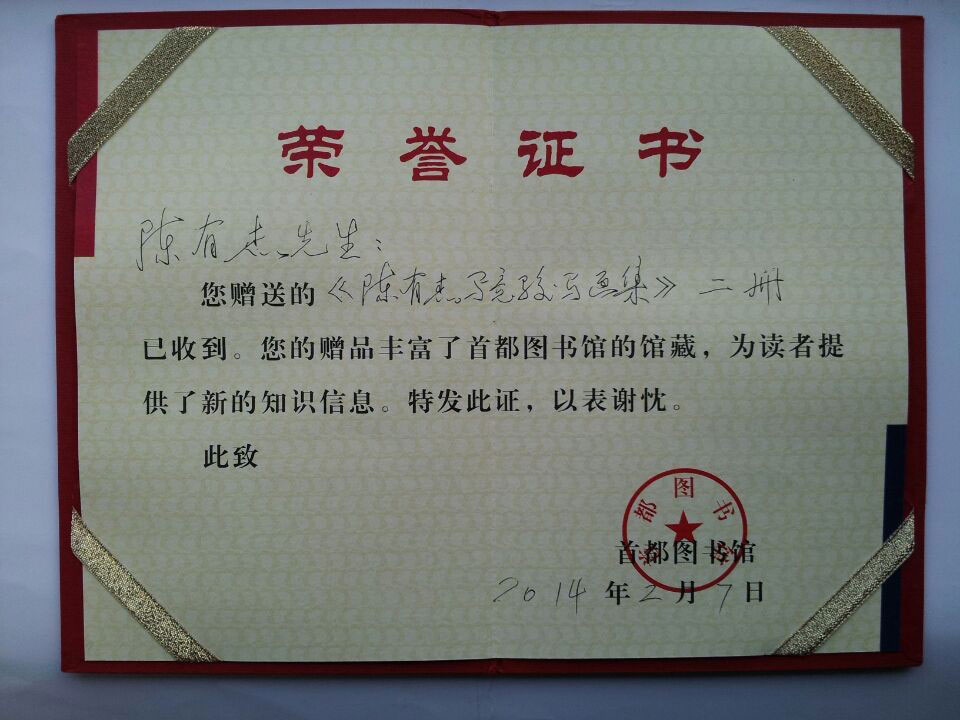 荣誉证书
陈有杰先生：
您赠送的《陈有杰写意骏马画集》二册
已收到。您的赠品丰富了首都图书馆的馆藏，为读者提
供了新的知识信息。特发此证，以表谢忱。
此致
首都图书馆
首都图书馆
2014年2月7日